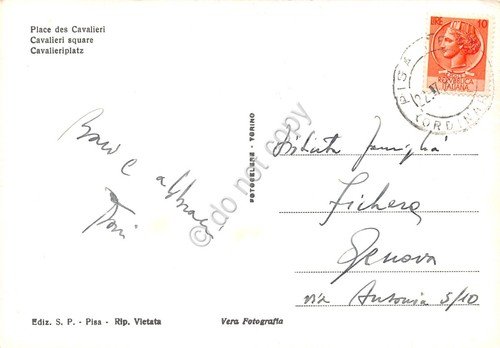 Place des Cavalieri
Cavalieri square
Cavalieriplatz
LIRE 10
REPUBBLICA
ITALIANA
PISA
(ORDINA
FOTOCELERE - TORINO
do not copy
Baci e abbracci
Distinta famiglia
Fichera
Genova
via Antonia 5/10
Ediz. S. P. - Pisa - Rip. Vietata
Vera Fotografia